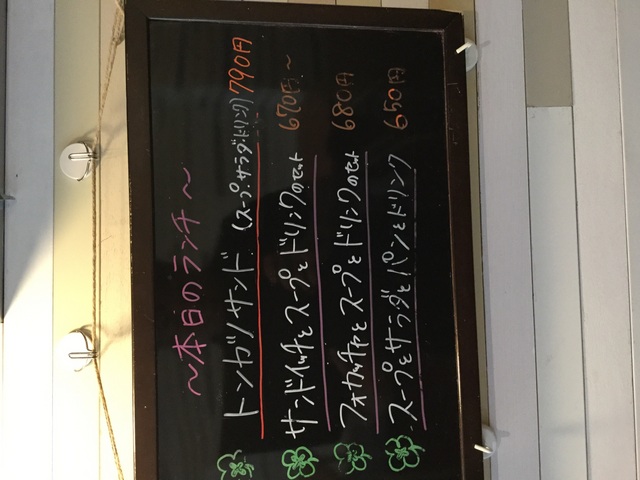 ～本日のランチ～
トンカツサンド (スープ・サラダ・ドリンク) 790円
サンドイッチとスープとドリンクのセット 670円～
フォカッチャとスープとドリンクのセット 680円
スープとサラダとパンとドリンク 650円